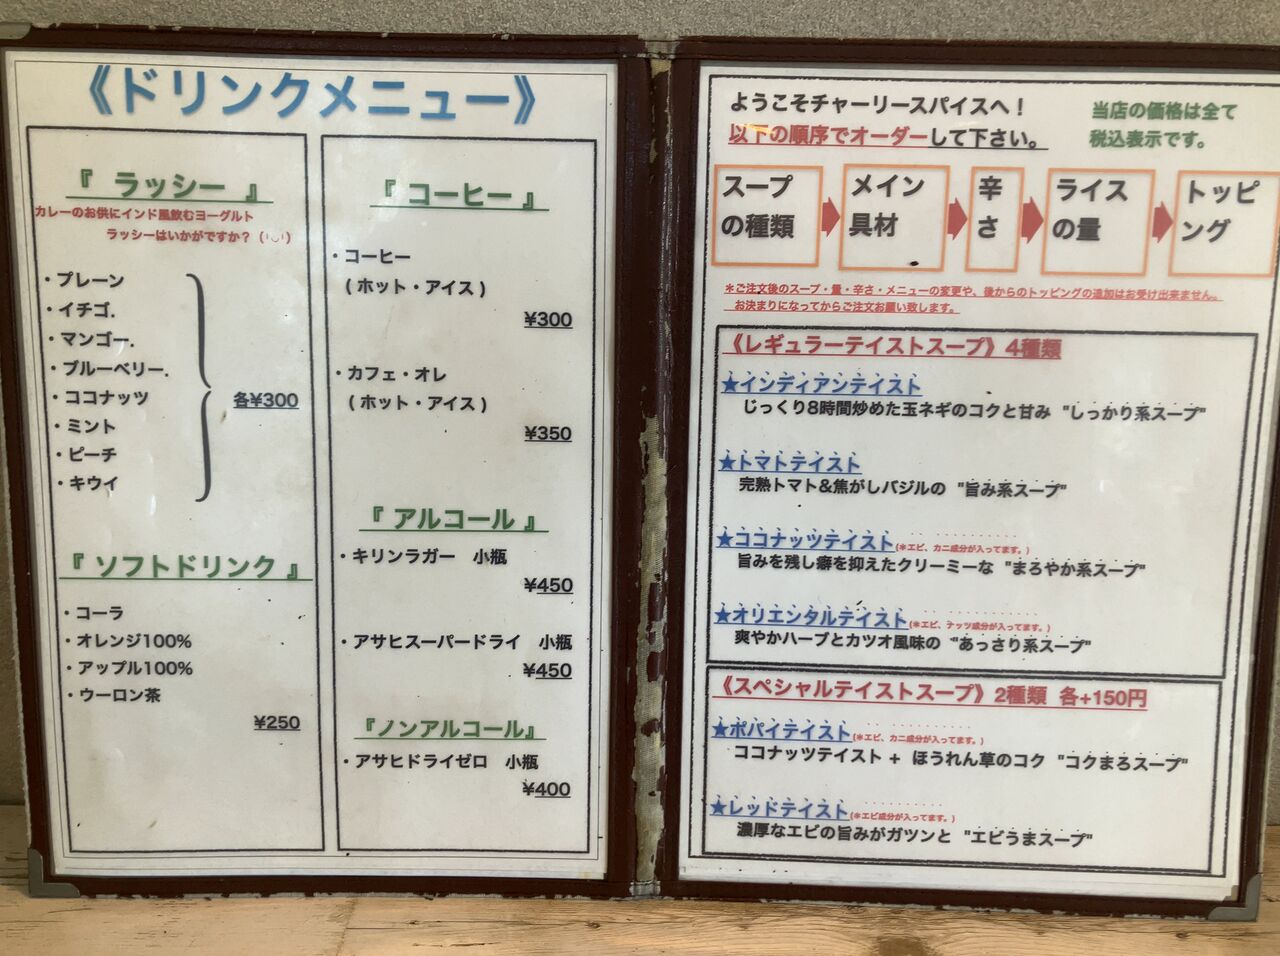 《ドリンクメニュー》
『 ラッシー 』
カレーのお供にインド風飲むヨーグルト
ラッシーはいかがですか？
・プレーン
・イチゴ.
・マンゴー.
・ブルーベリー.
・ココナッツ
・ミント
・ピーチ
・キウイ
各¥300
『 ソフトドリンク 』
・コーラ
・オレンジ100%
・アップル100%
・ウーロン茶
¥250
『 コーヒー 』
・コーヒー
( ホット・アイス )
¥300
・カフェ・オレ
( ホット・アイス )
¥350
『 アルコール 』
・キリンラガー　小瓶
¥450
・アサヒスーパードライ　小瓶
¥450
『ノンアルコール』
・アサヒドライゼロ　小瓶
¥400
ようこそチャーリースパイスへ！
以下の順序でオーダーして下さい。
当店の価格は全て
税込表示です。
スープ
の種類
メイン
具材
辛
さ
ライス
の量
トッピ
ング
＊ご注文後のスープ・量・辛さ・メニューの変更や、後からのトッピングの追加はお受け出来ません。
お決まりになってからご注文お願い致します。
《レギュラーテイストスープ》4種類
★インディアンテイスト
じっくり8時間炒めた玉ネギのコクと甘み "しっかり系スープ"
★トマトテイスト
完熟トマト&焦がしバジルの "旨み系スープ"
★ココナッツテイスト(＊エビ、カニ成分が入ってます。)
旨みを残し癖を抑えたクリーミーな "まろやか系スープ"
★オリエンタルテイスト(＊エビ、ナッツ成分が入ってます。)
爽やかハーブとカツオ風味の "あっさり系スープ"
《スペシャルテイストスープ》2種類 各+150円
★ポパイテイスト(＊エビ、カニ成分が入ってます。)
ココナッツテイスト + ほうれん草のコク "コクまろスープ"
★レッドテイスト(＊エビ成分が入ってます。)
濃厚なエビの旨みがガツンと "エビうまスープ"